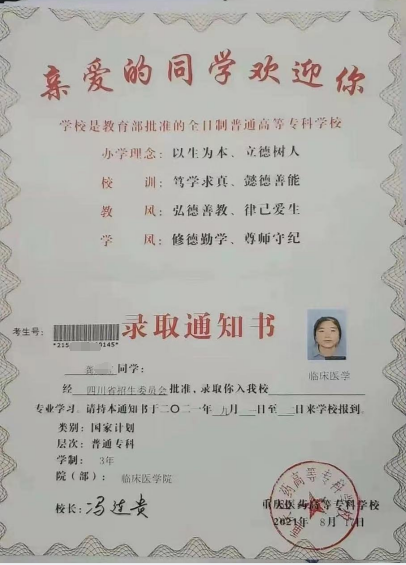 亲爱的同学欢迎你
学校是教育部批准的全日制普通高等专科学校
办学理念：以生为本、立德树人
校 训：笃学求真、懿德善能
教 风：弘德善教、律己爱生
学 风：修德勤学、尊师守纪
考生号：
录取通知书
同学：
临床医学
经 四川省招生委员会 批准，录取你入我校
专业学习。请持本通知书于二〇二一年九月 日至 日来学校报到。
类别：国家计划
层次：普通专科
学制：3年
院（部）：临床医学院
校长：冯连贵
重庆医药高等专科学校
2021年 8月 日